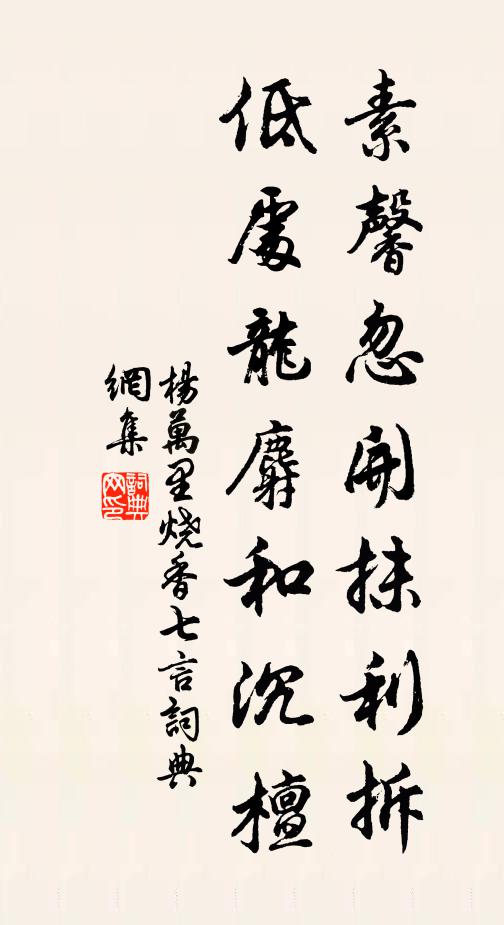 素馨忽開抹利拆
低處龍麝和沉檀
楊萬里燒香七言詞典
網集
詞典網印